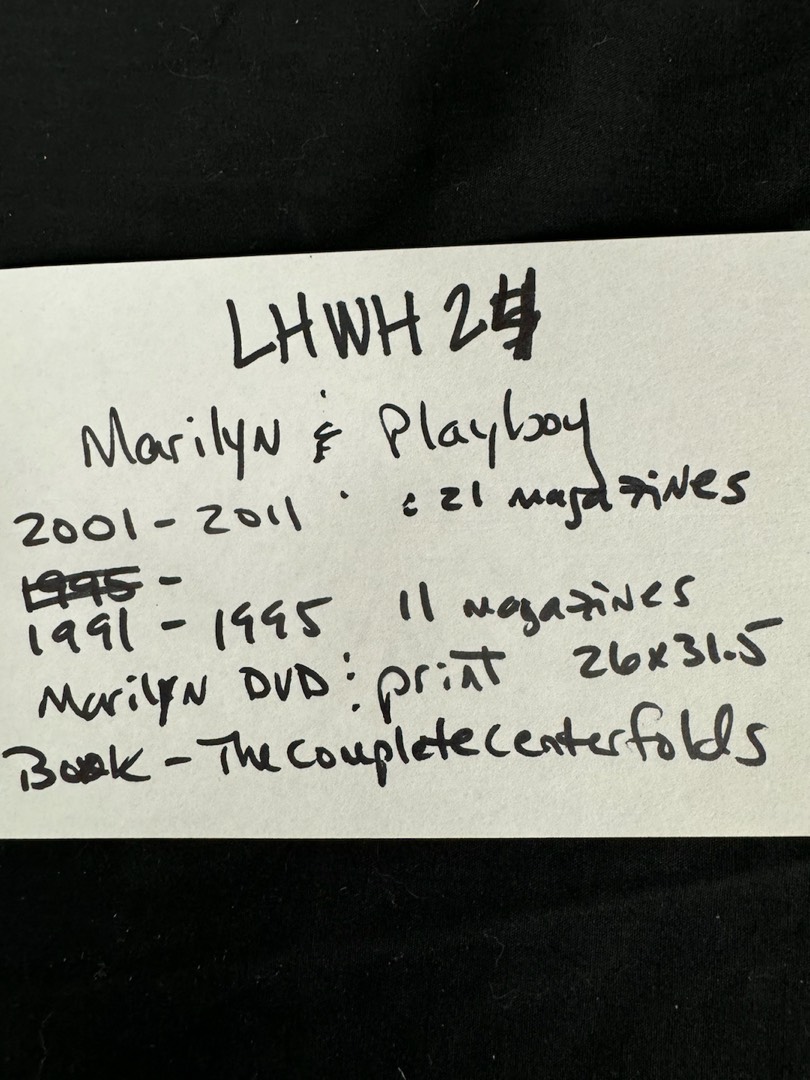 LHWH 24
Marilyn & Playboy
2001 - 2011 : 21 magazines
1995 -
1991 - 1995 11 magazines
Marilyn DVD : print 26x31.5
Book - The complete centerfolds